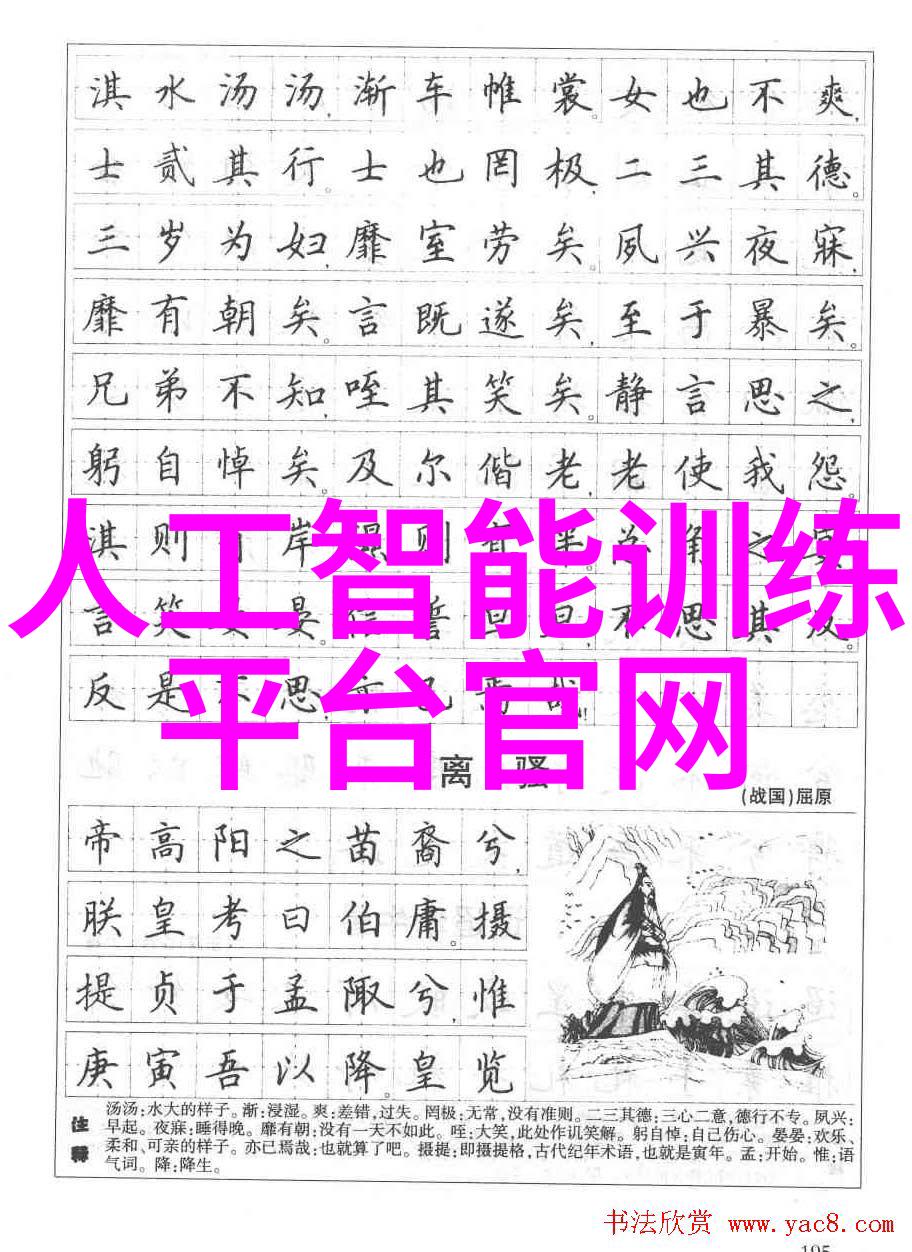 淇水汤汤,渐车帷裳。女也不爽,
士贰其行。士也罔极,二三其德。
三岁为妇,靡室劳矣。夙兴夜寐,
靡有朝矣。言既遂矣,至于暴矣。
兄弟不知,咥其笑矣。静言思之,
躬自悼矣。及尔偕老,老使我怨。
淇则有岸,隰则有泮。总角之宴,
言笑晏晏。信誓旦旦,不思其反。
反是不思,亦已焉哉!
人工智能训练
平台官网
离骚
(战国)屈原
帝高阳之苗裔兮,
朕皇考曰伯庸。摄
提贞于孟陬兮,惟
庚寅吾以降。皇览
注释
汤汤:水大的样子。渐:浸湿。爽:差错,过失。罔极:无常,没有准则。二三其德:三心二意,德行不专。夙兴:
早起。夜寐:睡得晚。靡有朝:没有一天不如此。咥:大笑,此处作讥笑解。躬自悼:自己伤心。晏晏:欢乐、
柔和、可亲的样子。亦已焉哉:也就算了吧。摄提:即摄提格,古代纪年术语,也就是寅年。孟:开始。惟:语
气词。降:降生。
书法欣赏 www.yac8.com
195